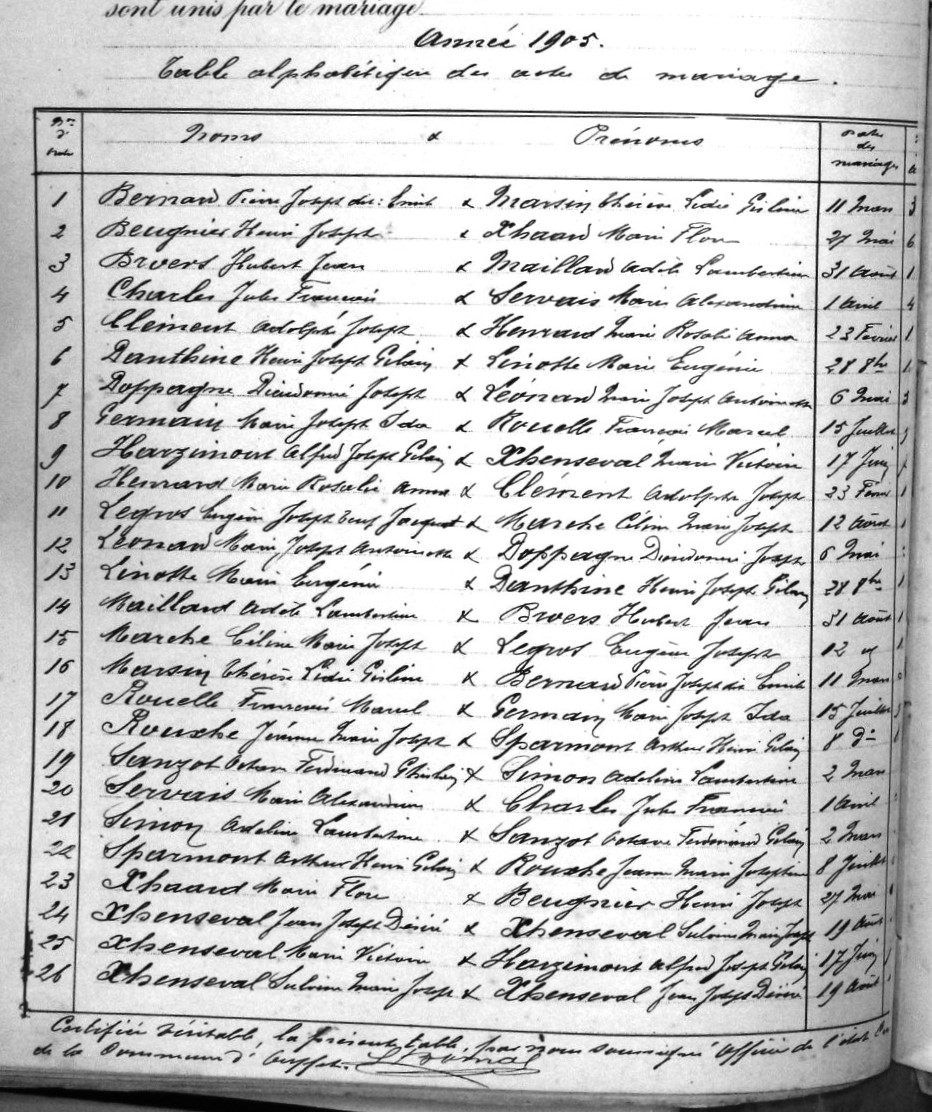 sont unis par le mariage
Année 1905.
Table alphabétique des actes de mariage.
Nos d'ordre Noms & Prénoms Dates des mariages
1 Bernard Pierre Joseph dit: Emile & Marsin Thérèse Lidie Gislaine 11 Mars 3
2 Beugnier Henri Joseph & Xhaard Marie Flore 27 Mai 6
3 Broers Hubert Jean & Maillard Adèle Lambertine 31 Août 1
4 Charles Jules François & Servais Marie Alexandrine 1 Avril 4
5 Clément Adolphe Joseph & Henrard Marie Rosalie Anna 23 Février 1
6 Danthine Henri Joseph Gilain & Linotte Marie Eugénie 28 8bre 1
7 Doppagne Dieudonné Joseph & Léonard Marie Joseph Antoinette 6 Mai 5
8 Germain Marie Joseph Ida & Rouelle François Marcel 15 Juillet
9 Harzimont Alfred Joseph Gilain & Xhenseval Marie Victoire 17 Juin
10 Henrard Marie Rosalie Anna & Clément Adolphe Joseph 23 Févr 1
11 Legros Eugène Joseph & Marche Céline Marie Joseph 12 Août
12 Léonard Marie Joseph Antoinette & Doppagne Dieudonné Joseph 6 Mai
13 Linotte Marie Eugénie & Danthine Henri Joseph Gilain 28 8bre 1
14 Maillard Adèle Lambertine & Broers Hubert Jean 31 Août 1
15 Marche Céline Marie Joseph & Legros Eugène Joseph 12
16 Marsin Thérèse Lidie Gisline & Bernard Pierre Joseph dit Emile 11 Mars
17 Rouelle François Marcel & Germain Marie Joseph Ida 15 Juillet
18 Rouxhe Jeanne Marie Joseph & Sparmont Arthur Henri Gilain 8 do
19 Sanzot Octave Ferdinand Ghislain & Simon Adeline Lambertine 2 Mars
20 Servais Marie Alexandrine & Charles Jules François 1 Avril
21 Simon Adeline Lambertine & Sanzot Octave Ferdinand Gilain 2 Mars
22 Sparmont Arthur Henri Gilain & Rouxhe Jeanne Marie Joséphine 8 Juillet
23 Xhaard Marie Flore & Beugnier Henri Joseph 27 Mai
24 Xhenseval Jean Joseph Désiré & Xhenseval Sulvine Marie Joseph 19 Août
25 Xhenseval Marie Victoire & Harzimont Alfred Joseph Gilain 17 Juin
26 Xhenseval Sulvine Marie Joseph & Xhenseval Jean Joseph Désiré 19 Août
Certifiée véritable, la présente table, par nous soussigné Officier de l'état
de la Commune d'